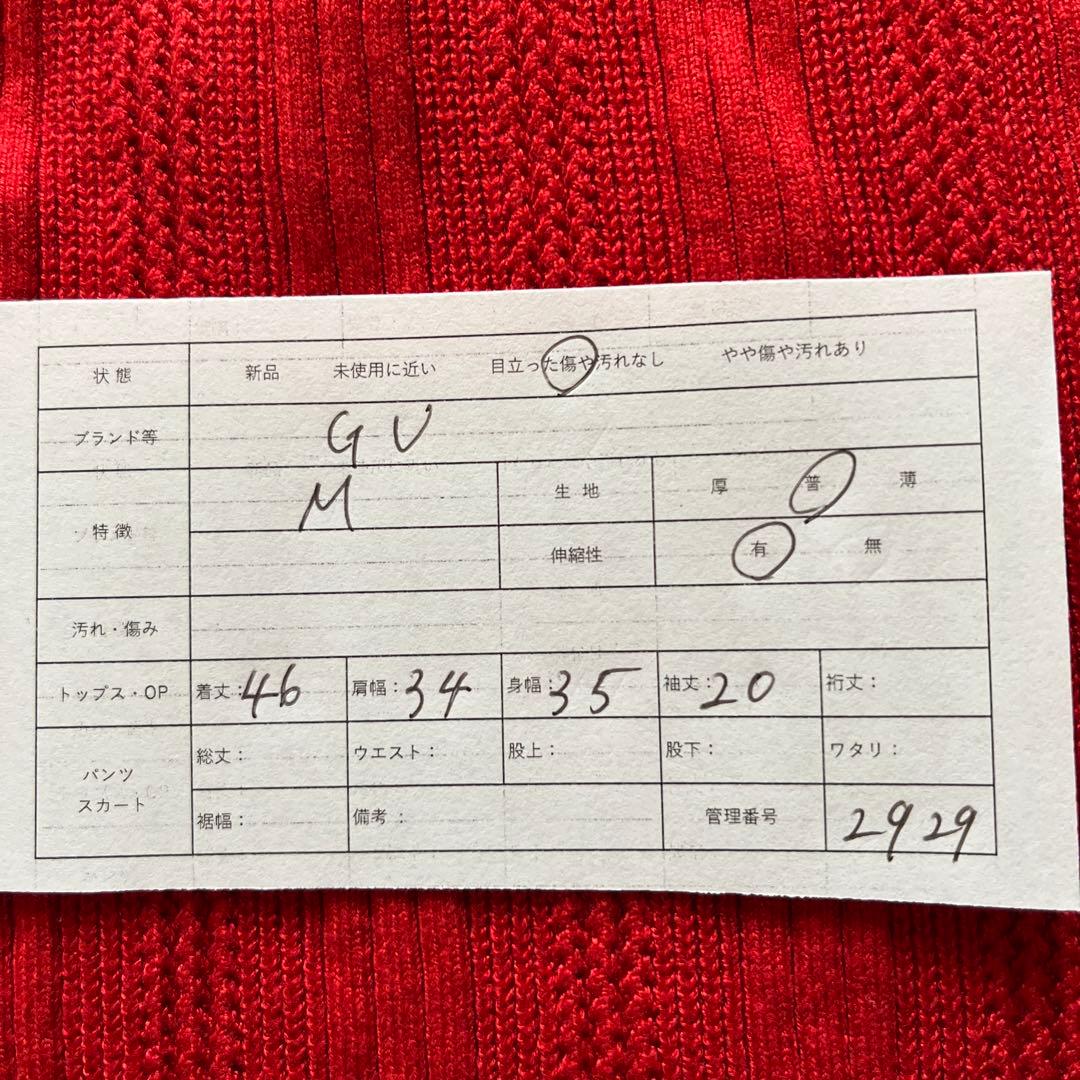 状態 新品 未使用に近い 目立った傷や汚れなし やや傷や汚れあり
ブランド等 GU
特徴 M 生地 厚 普 薄
伸縮性 有 無
汚れ・傷み
トップス・OP 着丈:46 肩幅:34 身幅:35 袖丈:20 裄丈:
パンツ スカート 総丈: ウエスト: 股上: 股下: ワタリ:
裾幅: 備考: 管理番号 2929